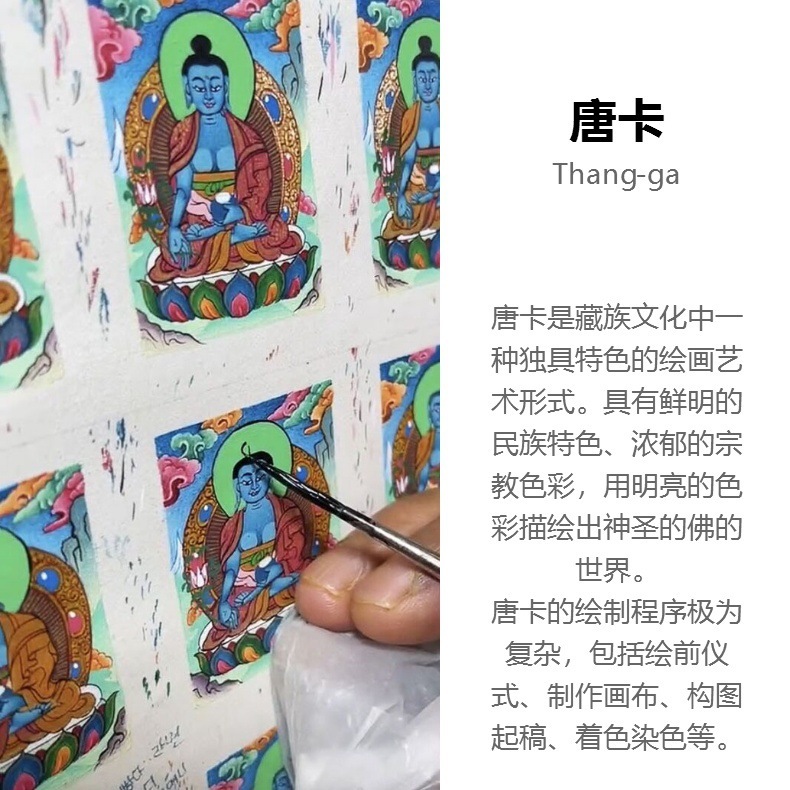 唐卡
Thang-ga
唐卡是藏族文化中一
种独具特色的绘画艺
术形式。具有鲜明的
民族特色、浓郁的宗
教色彩，用明亮的色
彩描绘出神圣的佛的
世界。
唐卡的绘制程序极为
复杂，包括绘前仪
式、制作画布、构图
起稿、着色染色等。